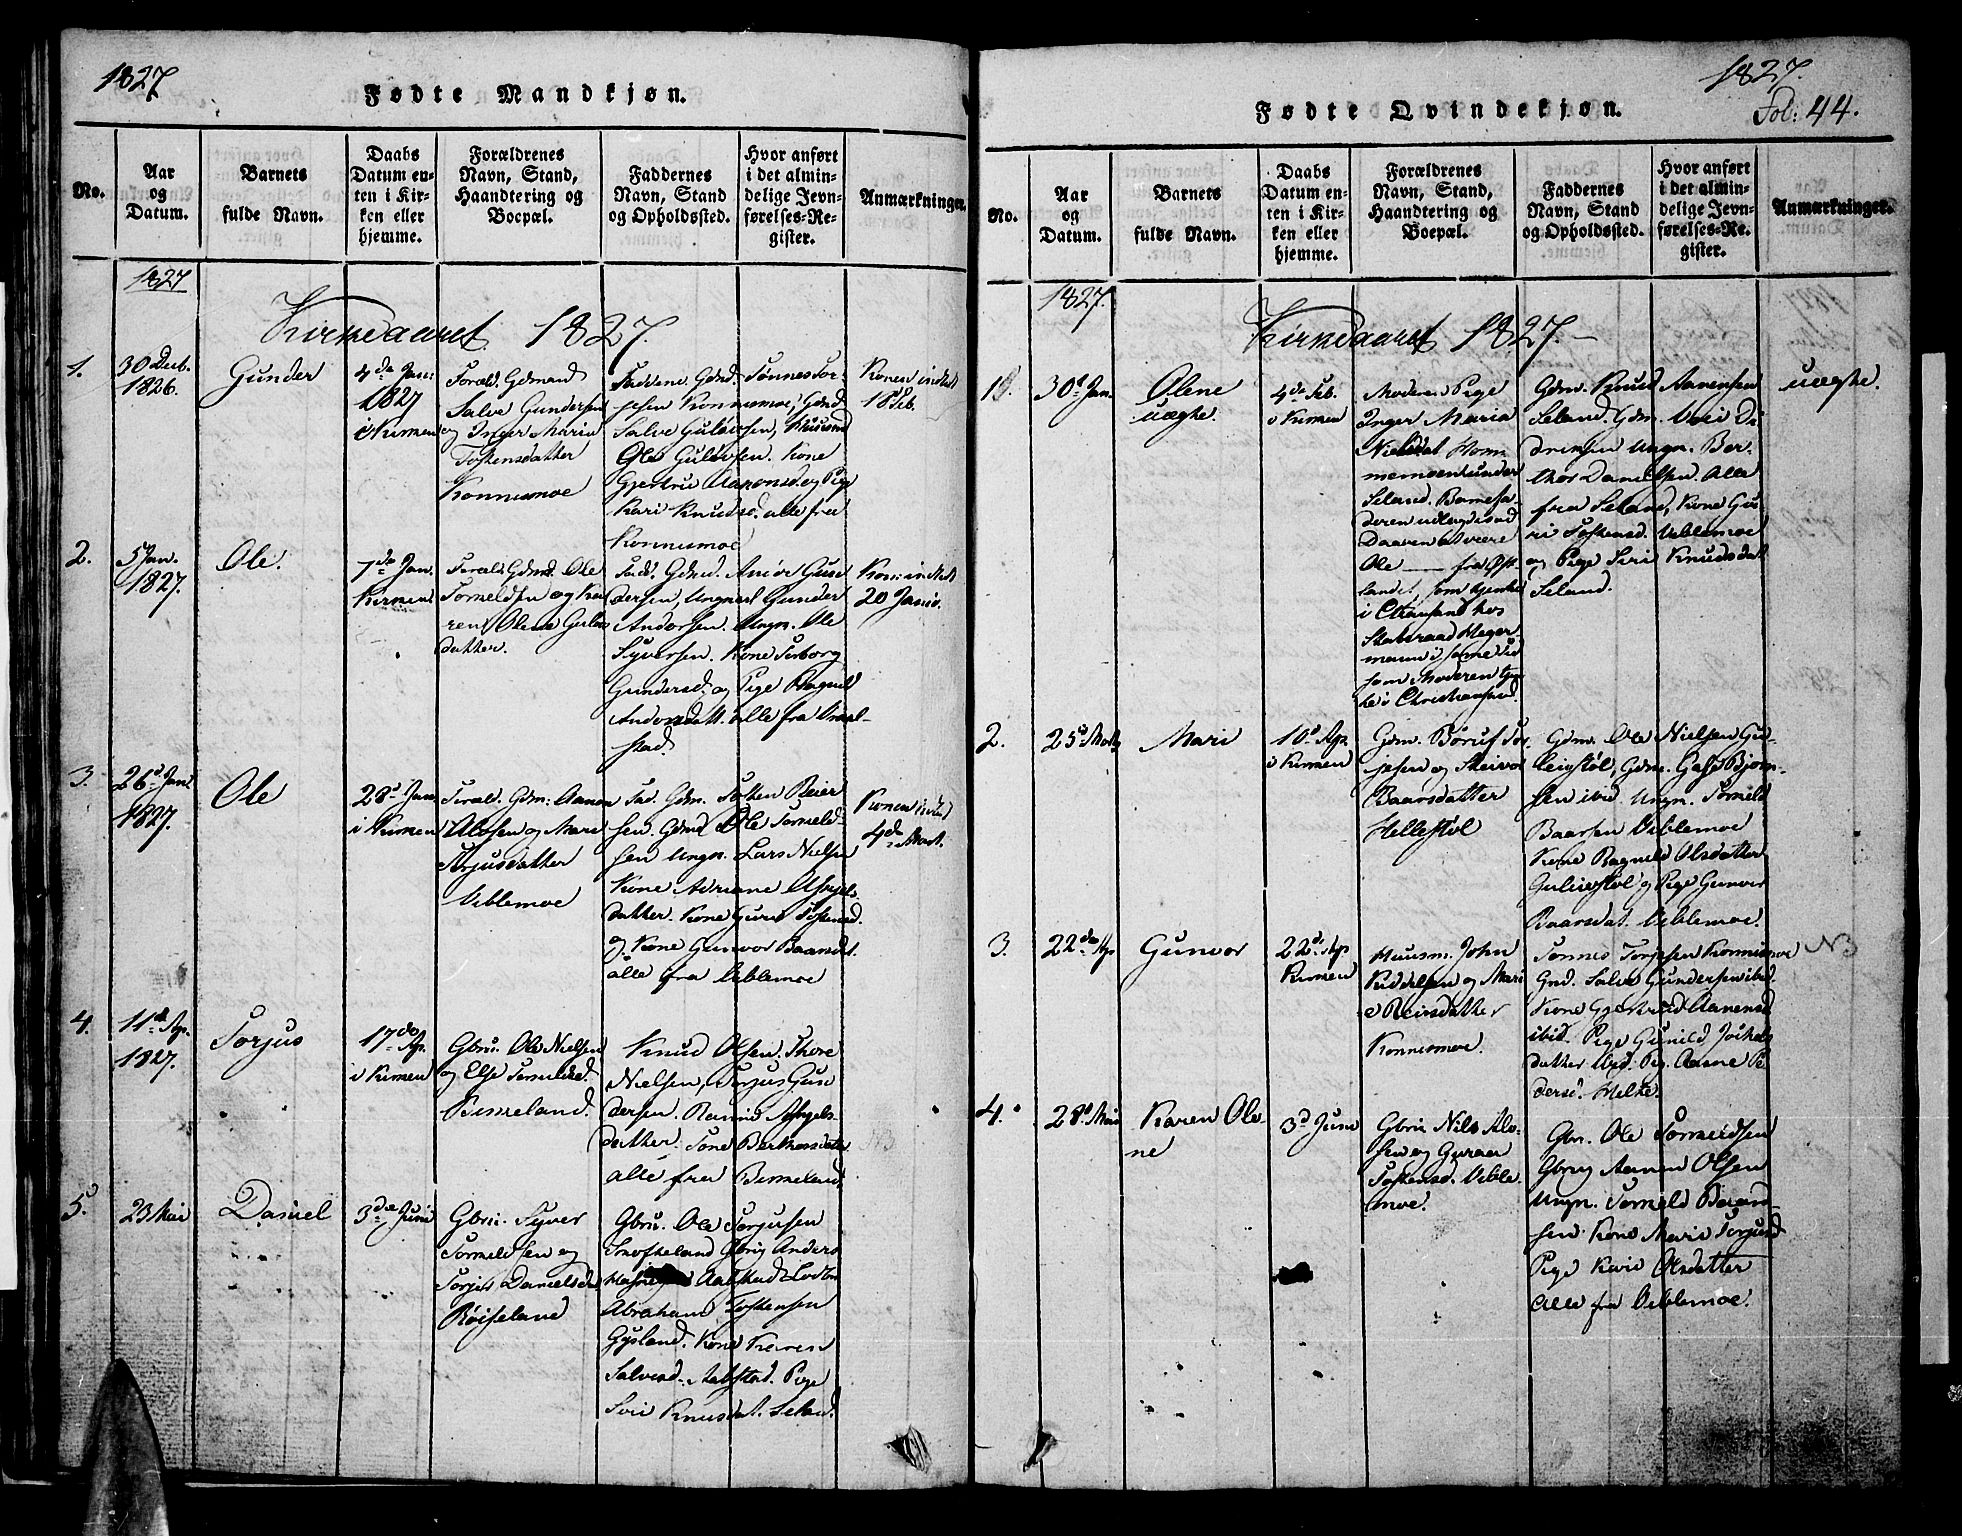 1827
Fødte Mandkjøn.
No.
Aar
og
Datum.
Barnets
fulde Navn.
Daabs
Datum en-
ten i Kir-
ken eller
hjemme.
Forældrenes
Navn, Stand,
Haandtering og
Boepæl.
Faddernes
Navn, Stand
og Opholdssted.
Hvor anført
i det almin-
delige Jevn-
førelses-Re-
gister.
Anmærkninger.
1827
Kirkeaaret 1827.
1.
30 Decb.
1826.
Gunder
4de Jan:
1827
i Kirken
Foræld. Gdmand
Salve Gundersen
og Inger Maria
Tostensdatter
Konnesmoe
Faddere Gdmd. Tønnes Tor-
jesen Konnesmoe, Gdmd
Salve Gulovsen, Huusmd
Ole Gulovsen. Kone
Gjertru Aanensd. og Pige
Kari Knudsd. alle fra
Konnesmoe
Konen indledt
18 Feb.
2.
5 Jan.
1827.
Ole.
7de Jan.
Kirken
Foræld. Gdmd. Ole
Tormeldsen og Ka-
ren Olene Gulovs
datter.
Fadd. Gdmd. Anders Gun
dersen, Ungmd Gunder
Andersen. Ungn. Ole
Syversen. Kone Torborg
Gundersd. og Pige Ragnild
Andersdatt. alle fra
stad.
Kone indledt
20 Janv.
3.
26d Jan
1827.
Ole
28d Jan
i Kirken
Foræld. Gdm: Aanen
Alofsen og Mari
Torjusdatter
Ueblemoe
Fad. Gdm. Tosten Reier
sen. Gdmd Ole Tormeld-
sen Ungn. Lars Nielsen
Kone Adriane Asgjels-
datter. Kone Guro Tostensd.
og Kone Gunvor Baarsdat.
alle fra Ueblemoe
Konen indledt
4de Mart.
4.
11te Ap.
1827.
Torjus
17de Ap.
i Kirken
Gbru. Ole Nielsen
og Else Tormeldsd.
Birkeland.
Knud Olsen. Thore
Nielsen, Torjus Gun
dersen. Asgjels-
datter. Tone Berthesdatter
alle fra Birkeland.
5.
23 Mai
Daniel
3de Juni
Gbru. Syver
Tormeldsen og
Torjer Danielsd.
Røiseland
Gbru. Ole Torjusen
Gbrug Anders
Aabstad
Abraham Tostensen
Gysland. Kone Karen
Salvesd. Aabstad. Pige
Siri Knudsdat. Seland.
1827.
Fol: 44.
Fødte Qvindekjøn.
No.
Aar
og
Datum.
Barnets
fulde Navn.
Daabs
Datum en-
ten i Kir-
ken eller
hjemme.
Forældrenes
Navn, Stand,
Haandtering og
Boepæl.
Faddernes
Navn, Stand
og Opholdssted.
Hvor anført
i det almin-
delige Jevn-
førelses-Re-
gister.
Anmærkninger.
1827.
Kirkeaaret 1827.
1.
30d Jan.
Olene
uægte.
4de Feb.
i Kirken
Moderen Pige
Inger Maria
Nielsdat Hom-
memoen under
Seland. Barnefa-
deren udlagdes ved
Daaben at være
Ole — fra Øst-
landet, som tjente
i Chransand hos
Statsraad Heger-
mann i samme Tid
som Moderen tjen
te i Christiansand.
Gdm. Knud Aanensen
Seland. Gdm. Di
driksen Ungn. Ber-
thor Danielsen. Alle
fra Seland, Kone Gu-
ri Tostensd. Ueblemoe
og Pige Siri Knudsdat.
Seland.
uægte.
2.
25d Marts
Mari
10d Ap.
i Kirken
Gdm. Børuf Tor-
jesen og
Baarsdatter
Hellestøl
Gdm. Ole Nielsen Gu-
leiestøl, Gdm. Bjørn-
sen ibid. Ungn. Tormeld
Baarsen Ueblemoe
Kone Ragnild Olsdatter
Guleiestøl og Pige Gunvor
Baarsdat. Ueblemoe.
3.
22de Ap
Gunvor
22d. Ap.
Kirken
Huusm. John
Kiddelsen og Mari
e Reiersdatter
Konnesmoe.
Tønnes Torjesen Konnesmoe
Gmd. Salve Gundersen ibid.
Kone Gjertrud Aanensd
ibid. Pige Gunild
datter ibid. Pig. Aasne Pe
dersd. Helle.
NB
4.
28d Mai
Karen Ole-
ne
3d Juni
Gbru Nils Alo-
sen og Guroe
Tostensd. Ueble
moe.
Gbr. Ole Tormeldsen
Gbrug Aanen Olsen
Ungn. Tormeld Baar
sen. Kone Mari Torjusd
Pige Kari Olsdatter
alle fra Ueblemoe.